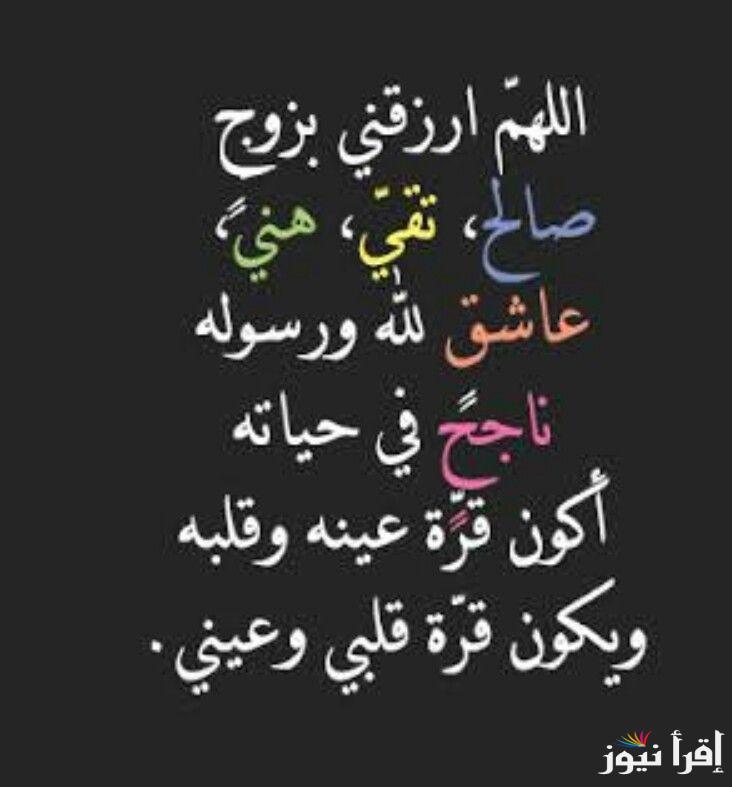 اللهمّ ارزقني بزوج
صالح، تقيّ، هنيً،
عاشق لله ورسوله
ناجحً في حياته
أكون قرّة عينه وقلبه
ويكون قرّة قلبي وعيني.
إقرأ نيوز